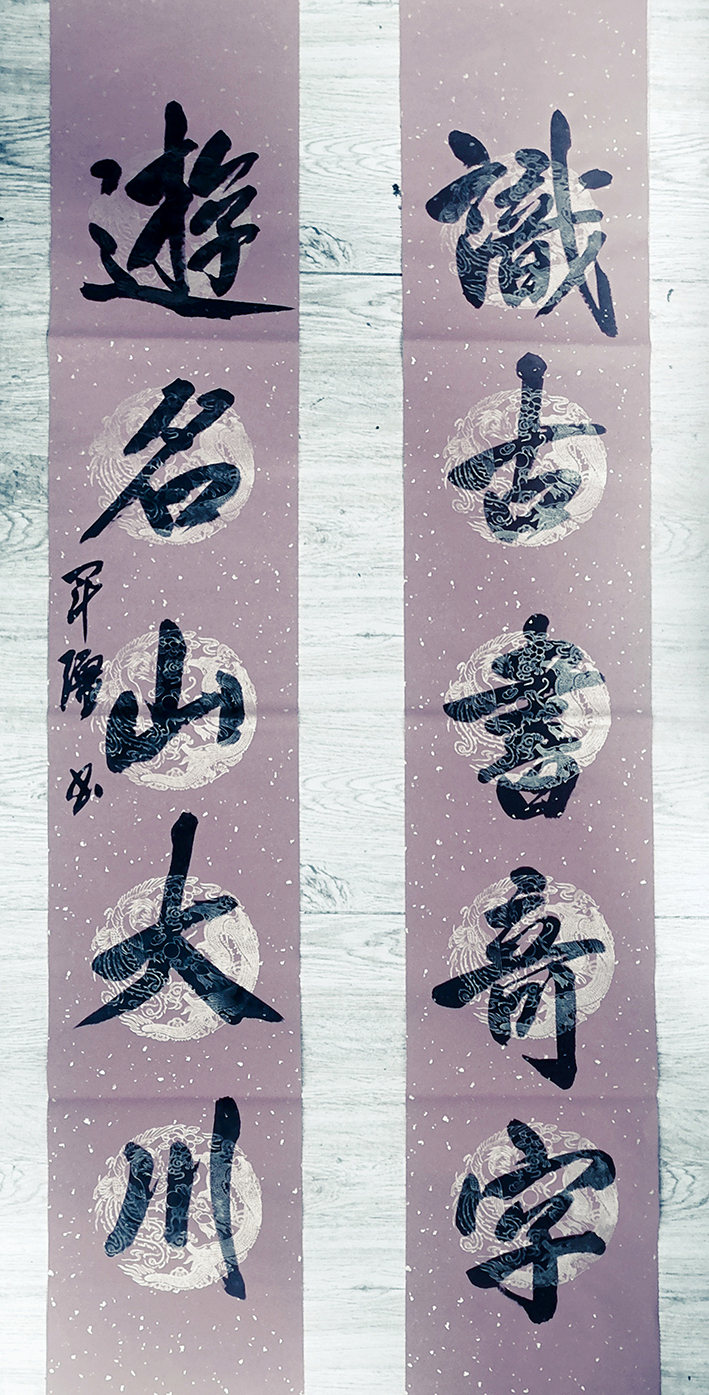 識古書奇字
遊名山大川
軍陽书